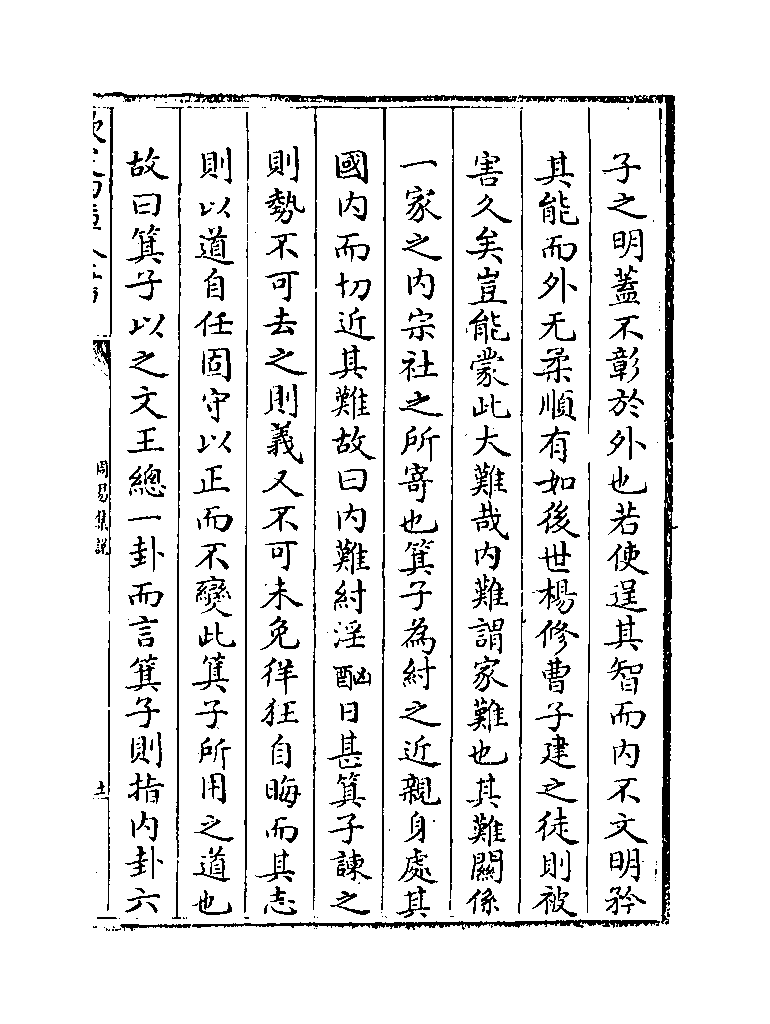 子之明蓋不彰於外也若使逞其智而内不文明矜
其能而外无柔順有如後世楊修曹子建之徒則被
害久矣豈能蒙此大難哉内難謂家難也其難關係
一家之内宗社之所寄也箕子為紂之近親身處其
國内而切近其難故曰内難紂淫酗日甚箕子諫之
則勢不可去之則義又不可未免佯狂自晦而其志
則以道自任固守以正而不變此箕子所用之道也
故曰箕子以之文王總一卦而言箕子則指内卦六
周易集說